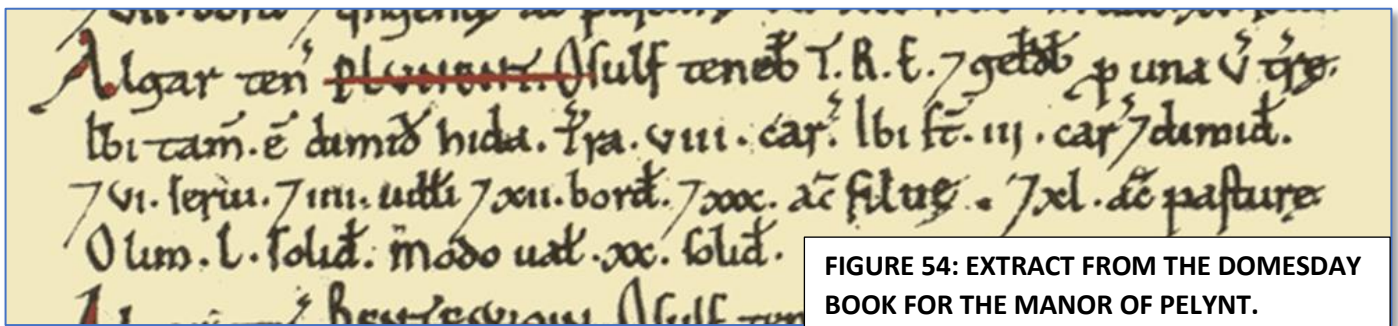 Algar ten̄ PLVNENT. Osulf teneb̄ T.R.E. ⁊ geld̄b p una v̓ tr̄e.
Ibi tam̄.ē dimid̄ hida. T̄ra.viii.car̓. Ibi st̄.iij.car̓ ⁊ dimid̄.
⁊ vi.serui. ⁊ iiii.uilłi ⁊ xii.bord̄. ⁊ xxx. ac̄ siluę. ⁊ xl.ac̄ pasturę.
Olim.l.solid̄. modo ual̄.xx. solid̄.
FIGURE 54: EXTRACT FROM THE DOMESDAY
BOOK FOR THE MANOR OF PELYNT.